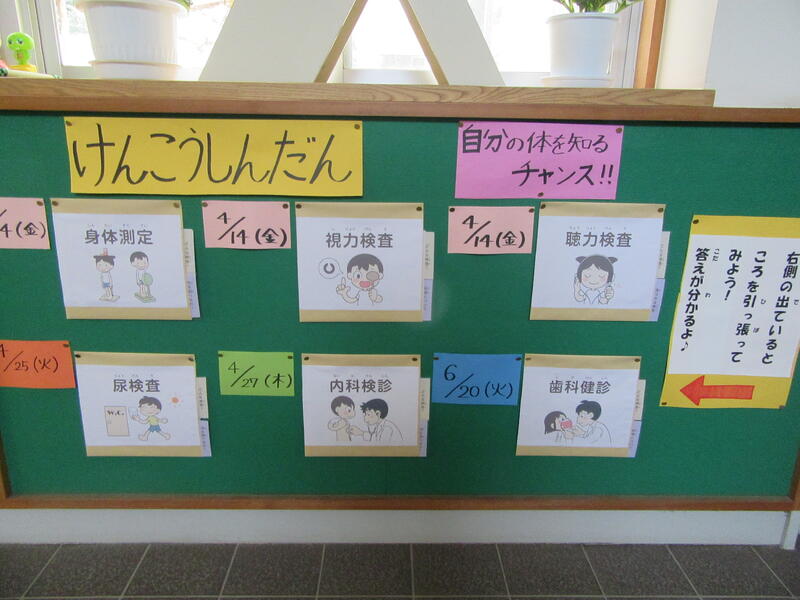 けんこうしんだん
自分の体を知る
チャンス!!
4(金)
身体測定
4/14(金)
視力検査
4/14(金)
聴力検査
/25(火)
尿検査
W.C.
4/27(木)
内科検診
6/20(火)
歯科健診
右側の出ていると
ころを引っ張って
みよう!
答えが分かるよ♪